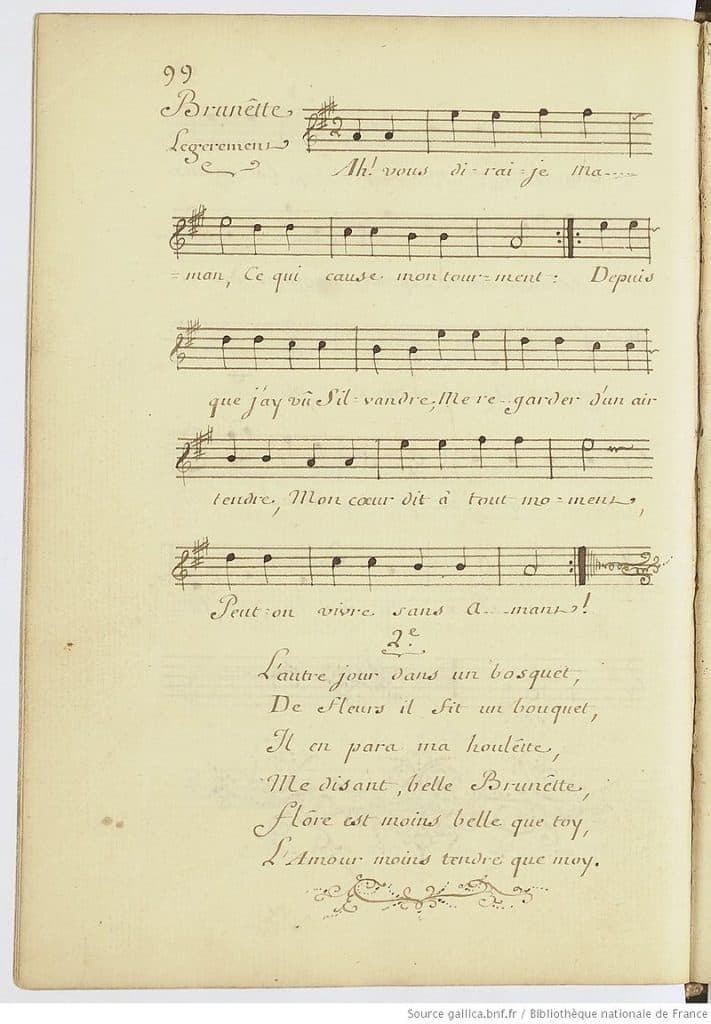 99
Brunêtte
Legerement
2
Ah! vous di-rai-je Ma-
-man, Ce qui cause mon tour-ment: Depuis
que j'ay vû Sil-vandre, Me re-garder d'un air
tendre, Mon cœur dit à tout mo-ment,
Peut-on vivre sans A-mant!
2.e
L'autre jour dans un bosquet,
De fleurs il fit un bouquet,
Il en para ma houlêtte,
Me disant, belle Brunêtte,
Flôre est moins belle que toy,
L'Amour moins tendre que moy.
Source gallica.bnf.fr / Bibliothèque nationale de France